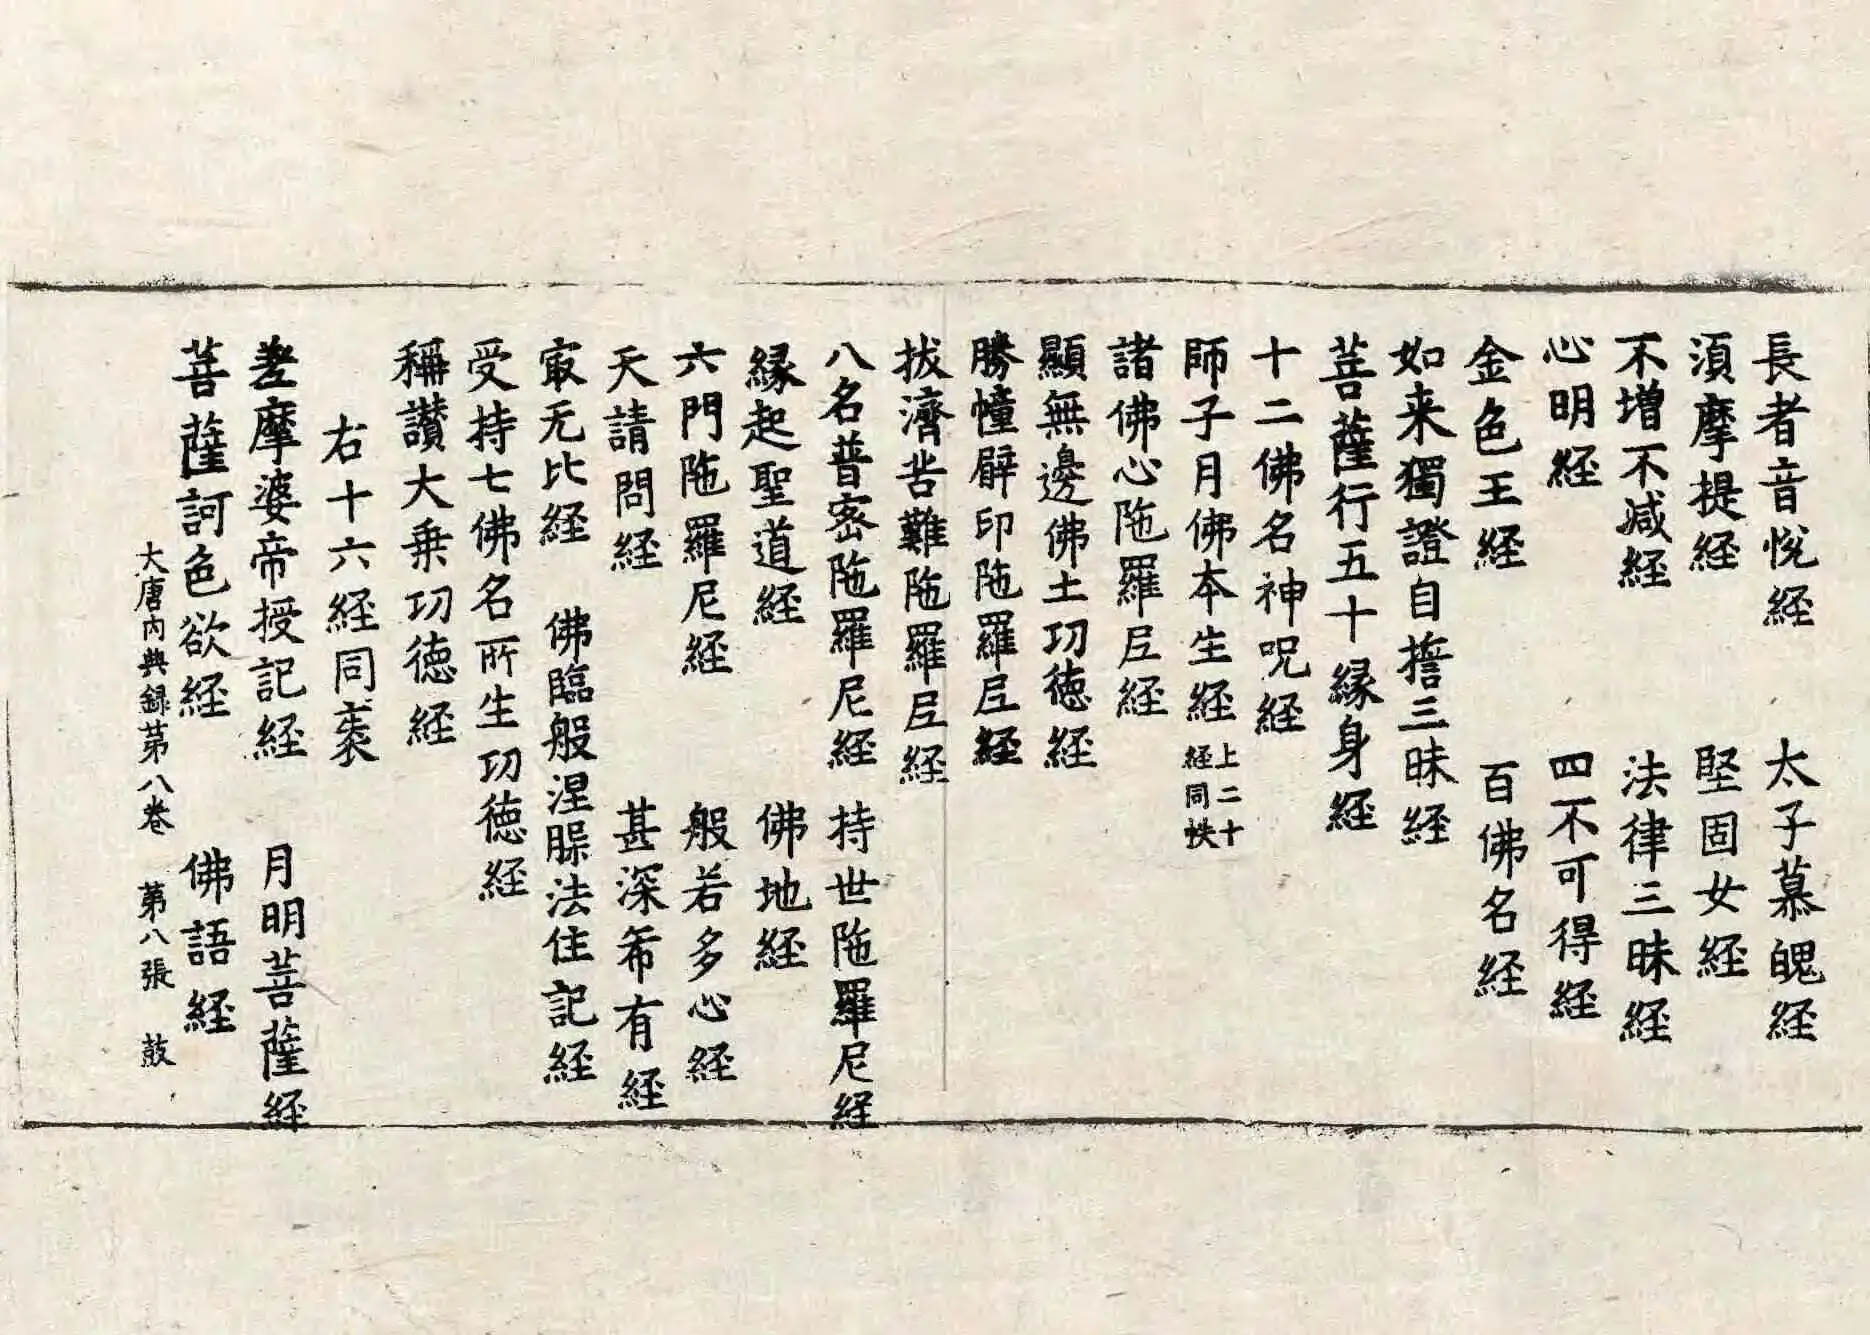 長者音悅経　太子慕魄経
湏摩提経　堅固女経
不増不减経　法律三昧経
心明経　四不可得経
金色王経　百佛名経
如来獨證自誓三昧経
菩薩行五十縁身経
十二佛名神呪経
師子月佛本生経 上二十経同帙
諸佛心陁羅尼経
顯無邊佛土功徳経
勝幢臂印陁羅尼経
拔濟苦難陁羅尼経
八名普密陁羅尼経　持世陁羅尼経
縁起聖道経　佛地経
六門陁羅尼経　般若多心経
天請問経　甚深希有経
㝡无比経　佛臨般涅槃法住記経
受持七佛名所生功徳経
稱讃大乗功徳経
右十六経同袠
差摩婆帝授記経　月明菩薩経
菩薩訶色欲経　佛語経
大唐内典録苐八巻　苐八張　鼓